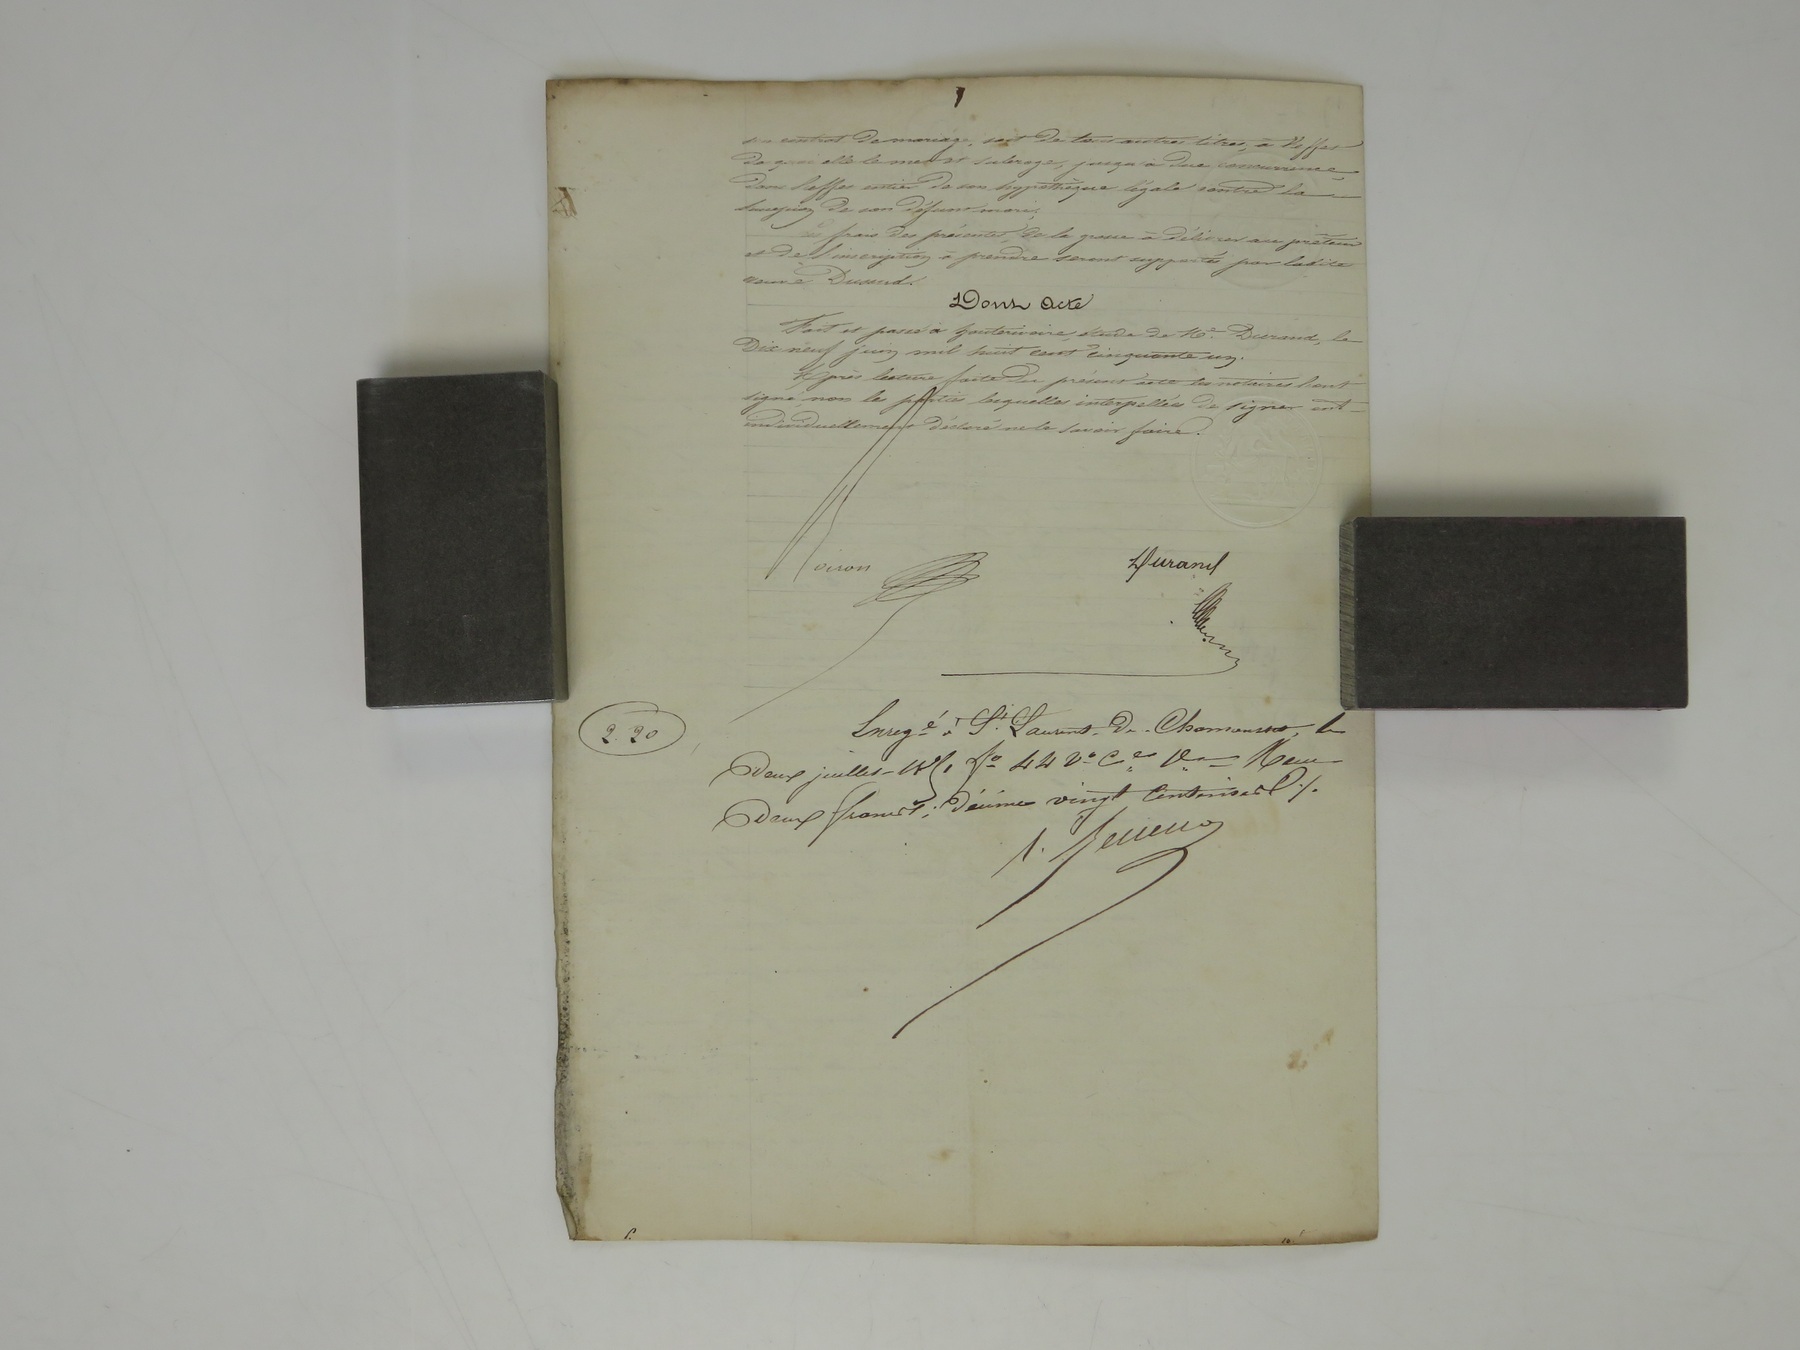 son contrat de mariage, soit de tous autres titres, à l'effet
de quoi elle le met et subroge, jusqu'à due concurrence,
dans l'effet entier de son hypothèque légale contre la
succession de son défunt mari.
Les frais des présentes, de la grosse à délivrer au prêteur
et de l'inscription à prendre seront supportés par ladite
veuve Dussud.
Dont Acte
Fait et passé à hauterivoire, étude de Me. Durand, le
Dix neuf juin mil huit cent cinquante un.
Après lecture faite du présent acte les notaires l'ont
signé, non les parties lesquelles interpellées de signer ont
individuellement déclaré ne le savoir faire.
Voiron
Durand
2.20
Enregé à St. Laurent-De-Chamousset, le
Deux juillet 1851 fo 44 Vo Ce
Deux francs, Décime vingt Centimes ./.